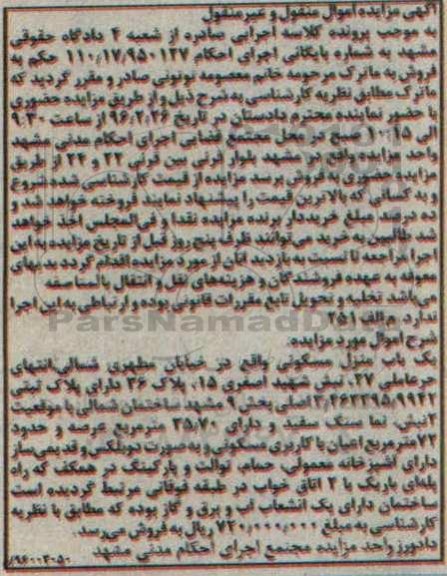 آگهی مزایده اموال منقول و غیرمنقول
به موجب پرونده کلاسه اجرایی صادره از شعبه ۴ دادگاه حقوقی
مشهد به شماره بایگانی اجرای احکام ۱۱۰/۱۷/۹۵۰۱۲۷ حکم به
فروش به ماترک مرحومه خانم معصومه تونونی صادر و مقرر گردید که
ماترک مطابق نظریه کارشناسی به شرح ذیل و از طریق مزایده حضوری
با حضور نماینده محترم دادستان در تاریخ ۹۶/۲/۲۶ از ساعت ۹:۳۰
الی ۱۰:۱۵ صبح در محل مجتمع قضایی اجرای احکام مدنی مشهد
واحد مزایده واقع در مشهد بلوار قرنی بین قرنی ۲۲ و ۲۴ از طریق
مزایده حضوری به فروش برسد مزایده از قیمت کارشناسی شده شروع
و به کسانی که بالاترین قیمت را پیشنهاد نمایند فروخته خواهد شد و
ده درصد مبلغ خریدار و برنده مزایده نقدا و فی‌المجلس اخذ خواهد
شد طالبین به خرید می‌توانند ظرف پنج روز قبل از تاریخ مزایده به این
اجرا مراجعه تا نسبت به بازدید آنان از مورد مزایده اقدام گردد بهای
معوقه به عهده فروشندگان و هزینه‌های نقل و انتقال بالمناصفه
می‌باشد تخلیه و تحویل تابع مقررات قانونی بوده و ارتباطی به این اجرا
ندارد. م الف ۲۵۱
ParsNamadData
شرح اموال مورد مزایده:
یک باب منزل مسکونی واقع در خیابان مطهری شمالی انتهای
حرعاملی ۲۷، نبش شهید اصغری ۱۵، پلاک ۳۶ دارای پلاک ثبتی
اصلی بخش ۹ مشهد ساختمان شمالی با موقعیت
۲ نبش، نما سنگ سفید و دارای ۳۵/۷۰ مترمربع عرصه و حدود
۷۲ مترمربع اعیان با کاربری مسکونی و به صورت دوبلکس و قدیمی‌ساز
دارای آشپزخانه معمولی، حمام، توالت و پارکینگ در همکف که راه
پله‌ای باریک با ۲ اتاق خواب در طبقه فوقانی مرتبط گردیده است
ساختمان دارای یک انشعاب آب و برق و گاز بوده که مطابق با نظریه
کارشناسی به مبلغ ۷۲۰/۰۰۰/۰۰۰ ریال به فروش می‌رسد.
دادورز واحد مزایده مجتمع اجرای احکام مدنی مشهد
۹۶۰۰۳۰۵۰/